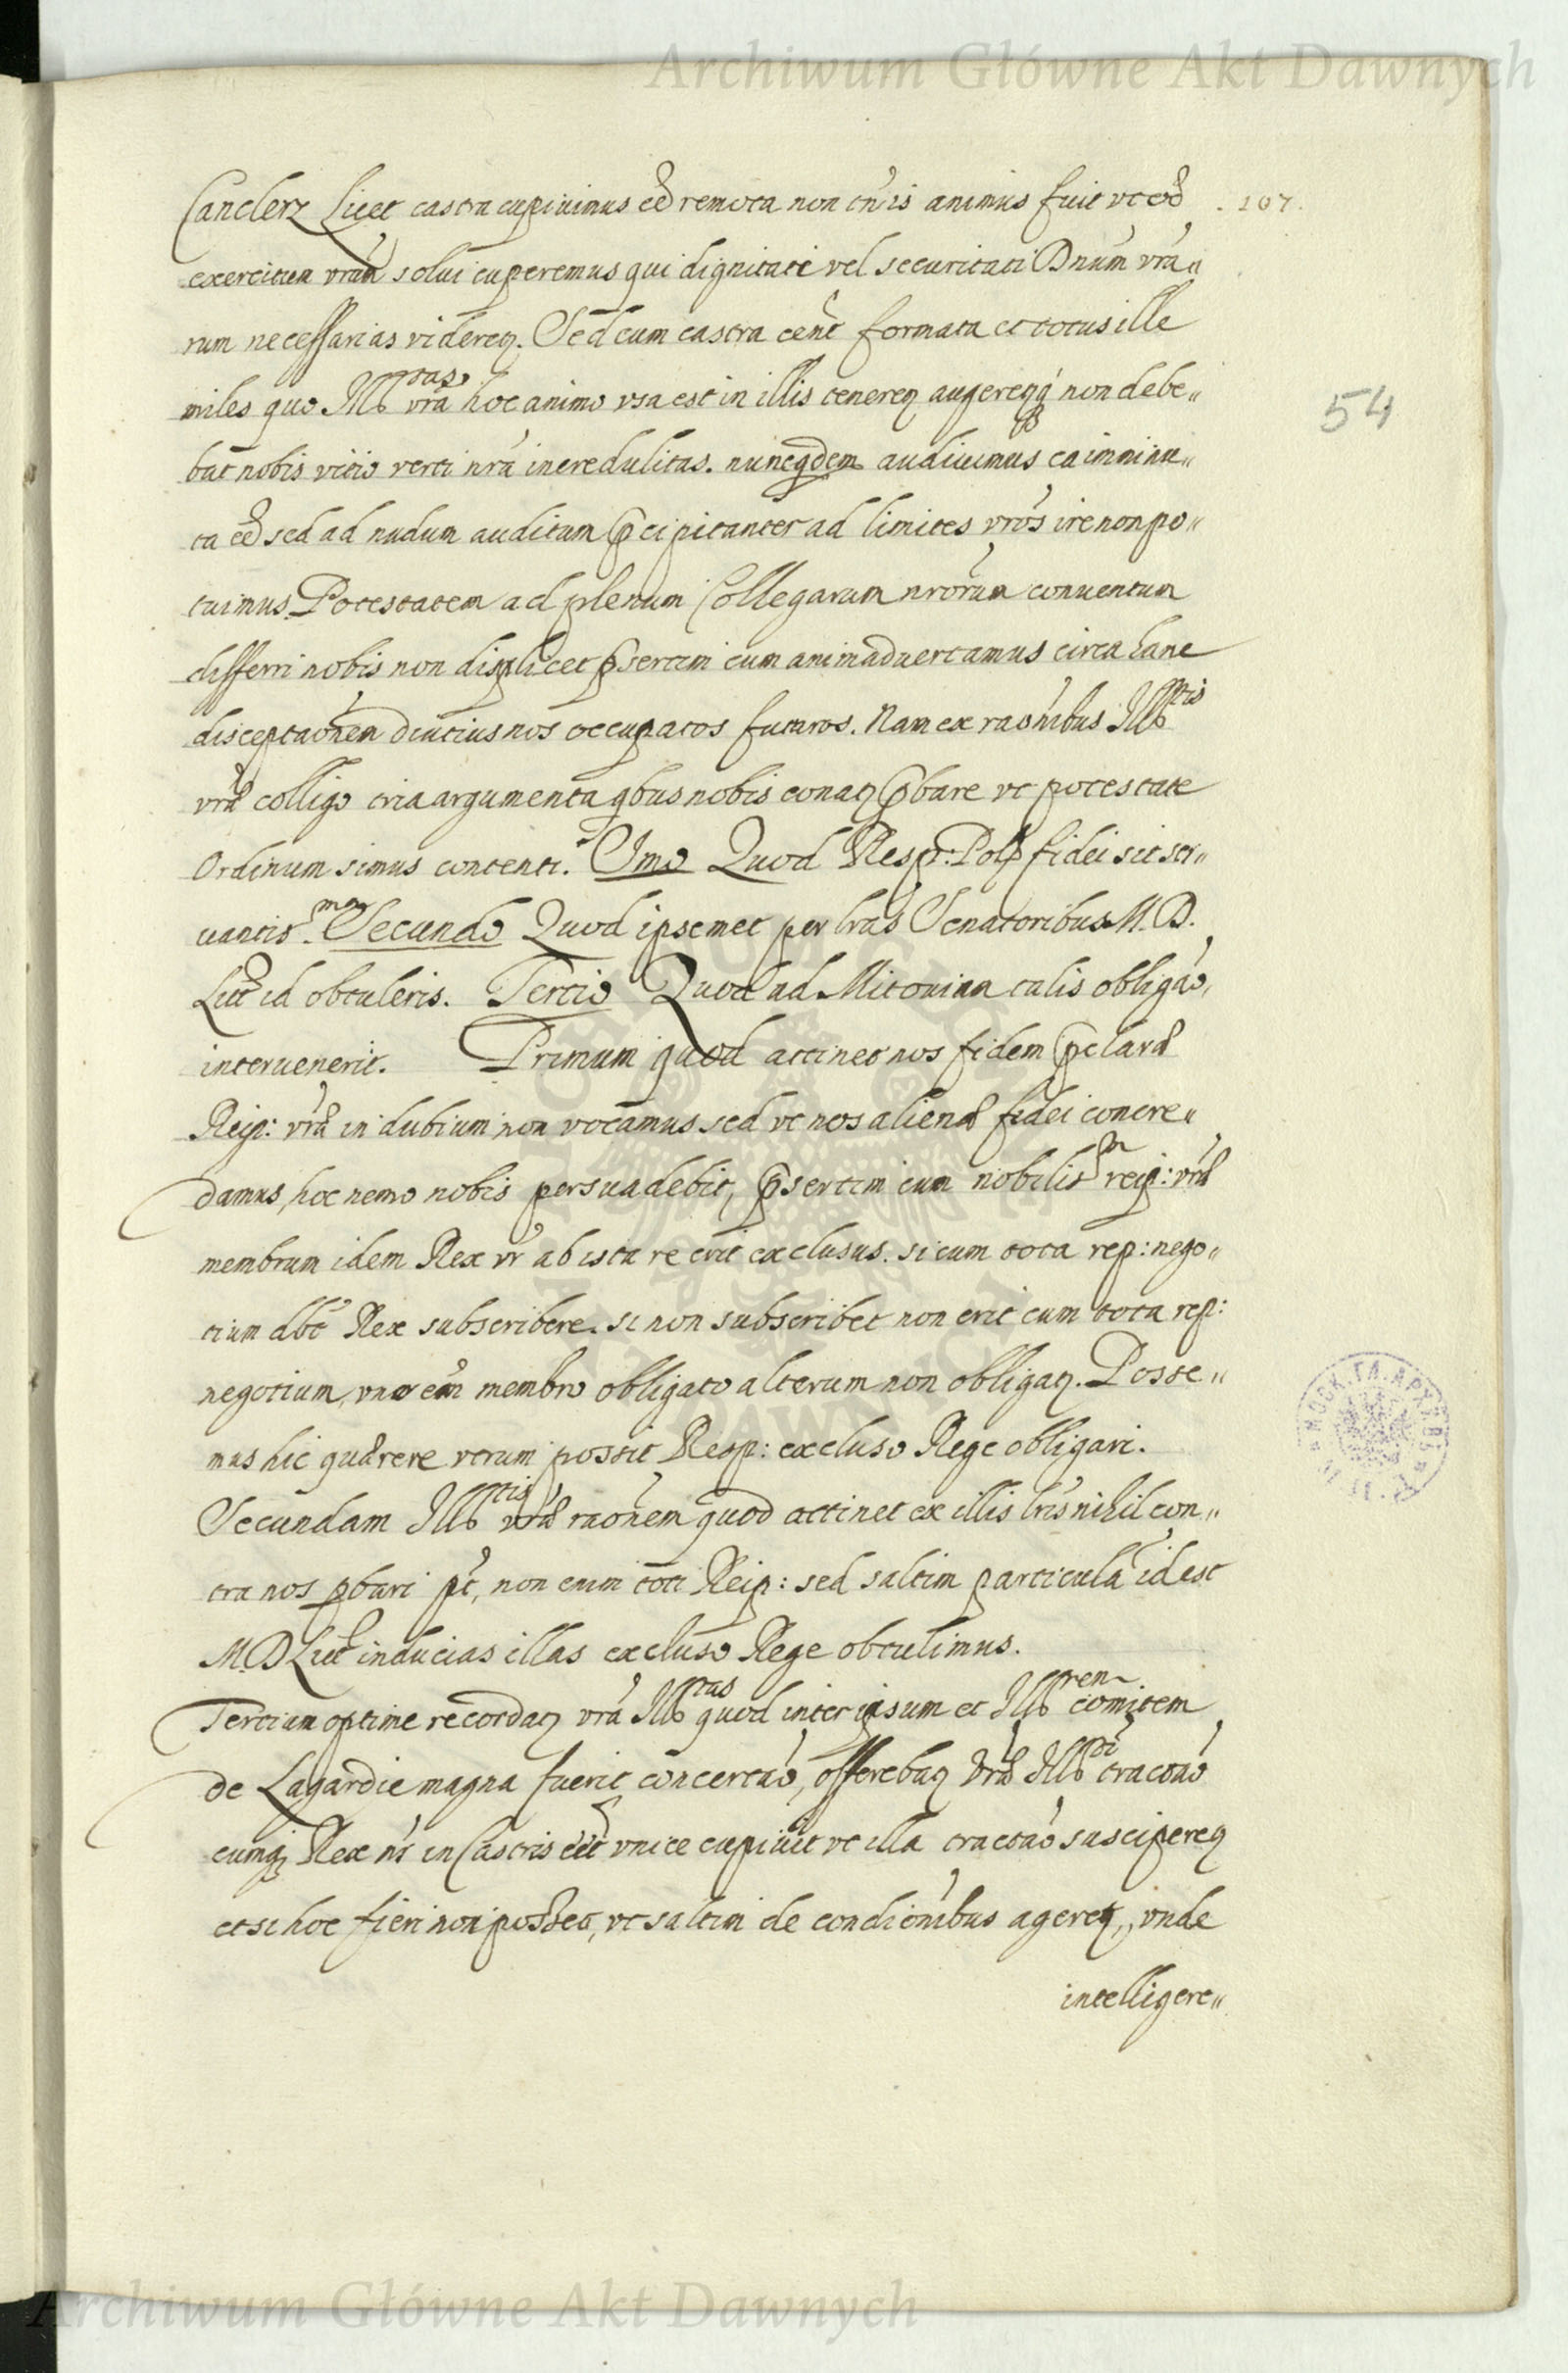 Archiwum Główne Akt Dawnych
Canclerz Licet castra cupiuimus eē remota non tn̄ is animus fuit vt eōd
. 107.
exercitum vrūm solui cuperemus qui dignitati vel securitati Dnūm vrā„
rum necessarias videreꝗ. Sed cum castra eēnt formata et totus ille
miles quo Illᵗᵃˢ vrā hoc animo vsa est in illis tenereꝗ augereꝗꝗ non debe„
54
bat nobis vitio verti nrā incredulitas. nunc qdem audiuimus ea imminu„
ta eē sed ad nudum auditum p̄cipitanter ad limites vrōs ire non po„
tuimus. Potestatem ad plenum Collegarum nrōrum conuentum
differri nobis non displicet p̄sertim cum animaduertamus circa hanc
disceptaōnem diutius nos occupatos futuros. Nam ex raōnibus Illᵗⁱˢ
vrā colligo tria argumenta qbus nobis conaꝗ p̄bare vt potestate
Ordinum simus contenti. Imo Quod Resp: Pol: fidei sit ser„
uantisᵐᵃ. Secundo Quod ipsemet per lrās Senatoribus M. D.
Litt id obtuleris. Tertio Quod ad Mitouiam talis obligaō,
interuenerit. Primum quod attinet nos fidem p̄claræ
Reip: vrā in dubium non vocamus sed vt nos alienæ fidei concre„
damus, hoc nemo nobis persuadebit, p̄sertim cum nobilisᵐ reip: vrā
membrum idem Rex vr̄ ab ista re erit exclusus. si cum tota rep: nego„
tium dbt̄ Rex subscribere. si non subscribet non erit cum tota rep:
negotium, vno eīm membro obligato alterum non obligaꝗ. Posse„
mus hic quærere vtrum possit Resp: excluso Rege obligari.
Secundam Illᵗⁱˢ vrā raōnem quod attinet ex illis lrīs nihil con„
tra nos p̄bari pt̄, non enim toti Reip: sed saltim particulā id est
M. D Litt inducias illas excluso Rege obtulimus.
Tertiam optime recordaꝗ vrā Illᵗᵃˢ quod inter ipsum et Illʳᵉᵐ comitem
de Lagardie magna fuerit concertaō, offerebaꝗ vrā Illᵗⁱ tractaō
cumꝗ Rex nr̄ in Castris eēt vnice cupiuit vt illa tractaō suscipereꝗ
et si hoc fieri non posset, vt saltim de condiōnibus agereꝗ, vnde
intelligere„
Archiwum Główne Akt Dawnych